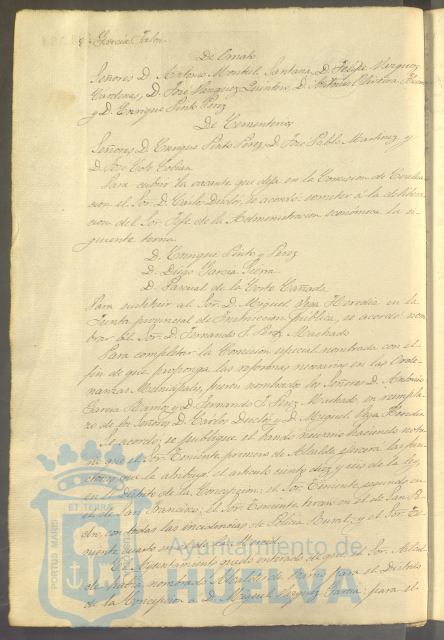 D. García Jalon.
De Ornato
Señores D. Antonio Montiel Santana, D. Felipe Vazquez
Cardenas, D. José Vazquez Quintero, D. Antonio Oliveira
y D. Enrique Pinto Perez
De Cementerios
Señores D. Enrique Pinto Perez, D. José Pablo Martinez y
D. José Coto Cobian
Para cubrir la vacante que deja en la Comision de Evalua-
cion el Sor. D. Carlos, se acordó someter á la delibera-
cion del Sor. Jefe de la Administracion económica la si-
guiente terna.
D. Enrique Pinto y Perez
D. Diego Garcia
D. Pascual de la Corte Cañada
Para sustituir al Sor. D. Miguel Vaz Heredia en la
Junta provincial de Instruccion pública, se acordó nom-
brar al Sor. D. Fernando J. Perez Machado
Para completar la Comision especial nombrada con el
fin de que proponga las reformas necesarias en las Orde-
nanzas Municipales, fueron nombrados los Señores D. Antonio
Garcia Ramos y D. Fernando J. Perez Machado, en reempla-
zo de los Señores D. Carlos y D. Miguel Vaz Heredia
Se acordó se publique el bando necesario haciendo noto-
rio que el Sor. Teniente primero de Alcalde ejercerá las fun-
ciones que le atribuye el artículo ciento diez y seis de la ley,
en el distrito de la Concepcion; el Sor. Teniente segundo en
el de San Francisco; el Sor. Teniente tercero en el de San Pe-
dro, con todas las incidencias de Policia Rural, y el Sor. Te-
niente cuarto en el de la Merced.
El Ayuntamiento quedó enterado de que el Sor. Alcal-
de habia nombrado Alcaldes de barrio para el Distrito
de la Concepcion á D. Miguel Vazquez Garcia: para el
PORTUS MARIS ET TERRÆ
Ayuntamiento de
HUELVA